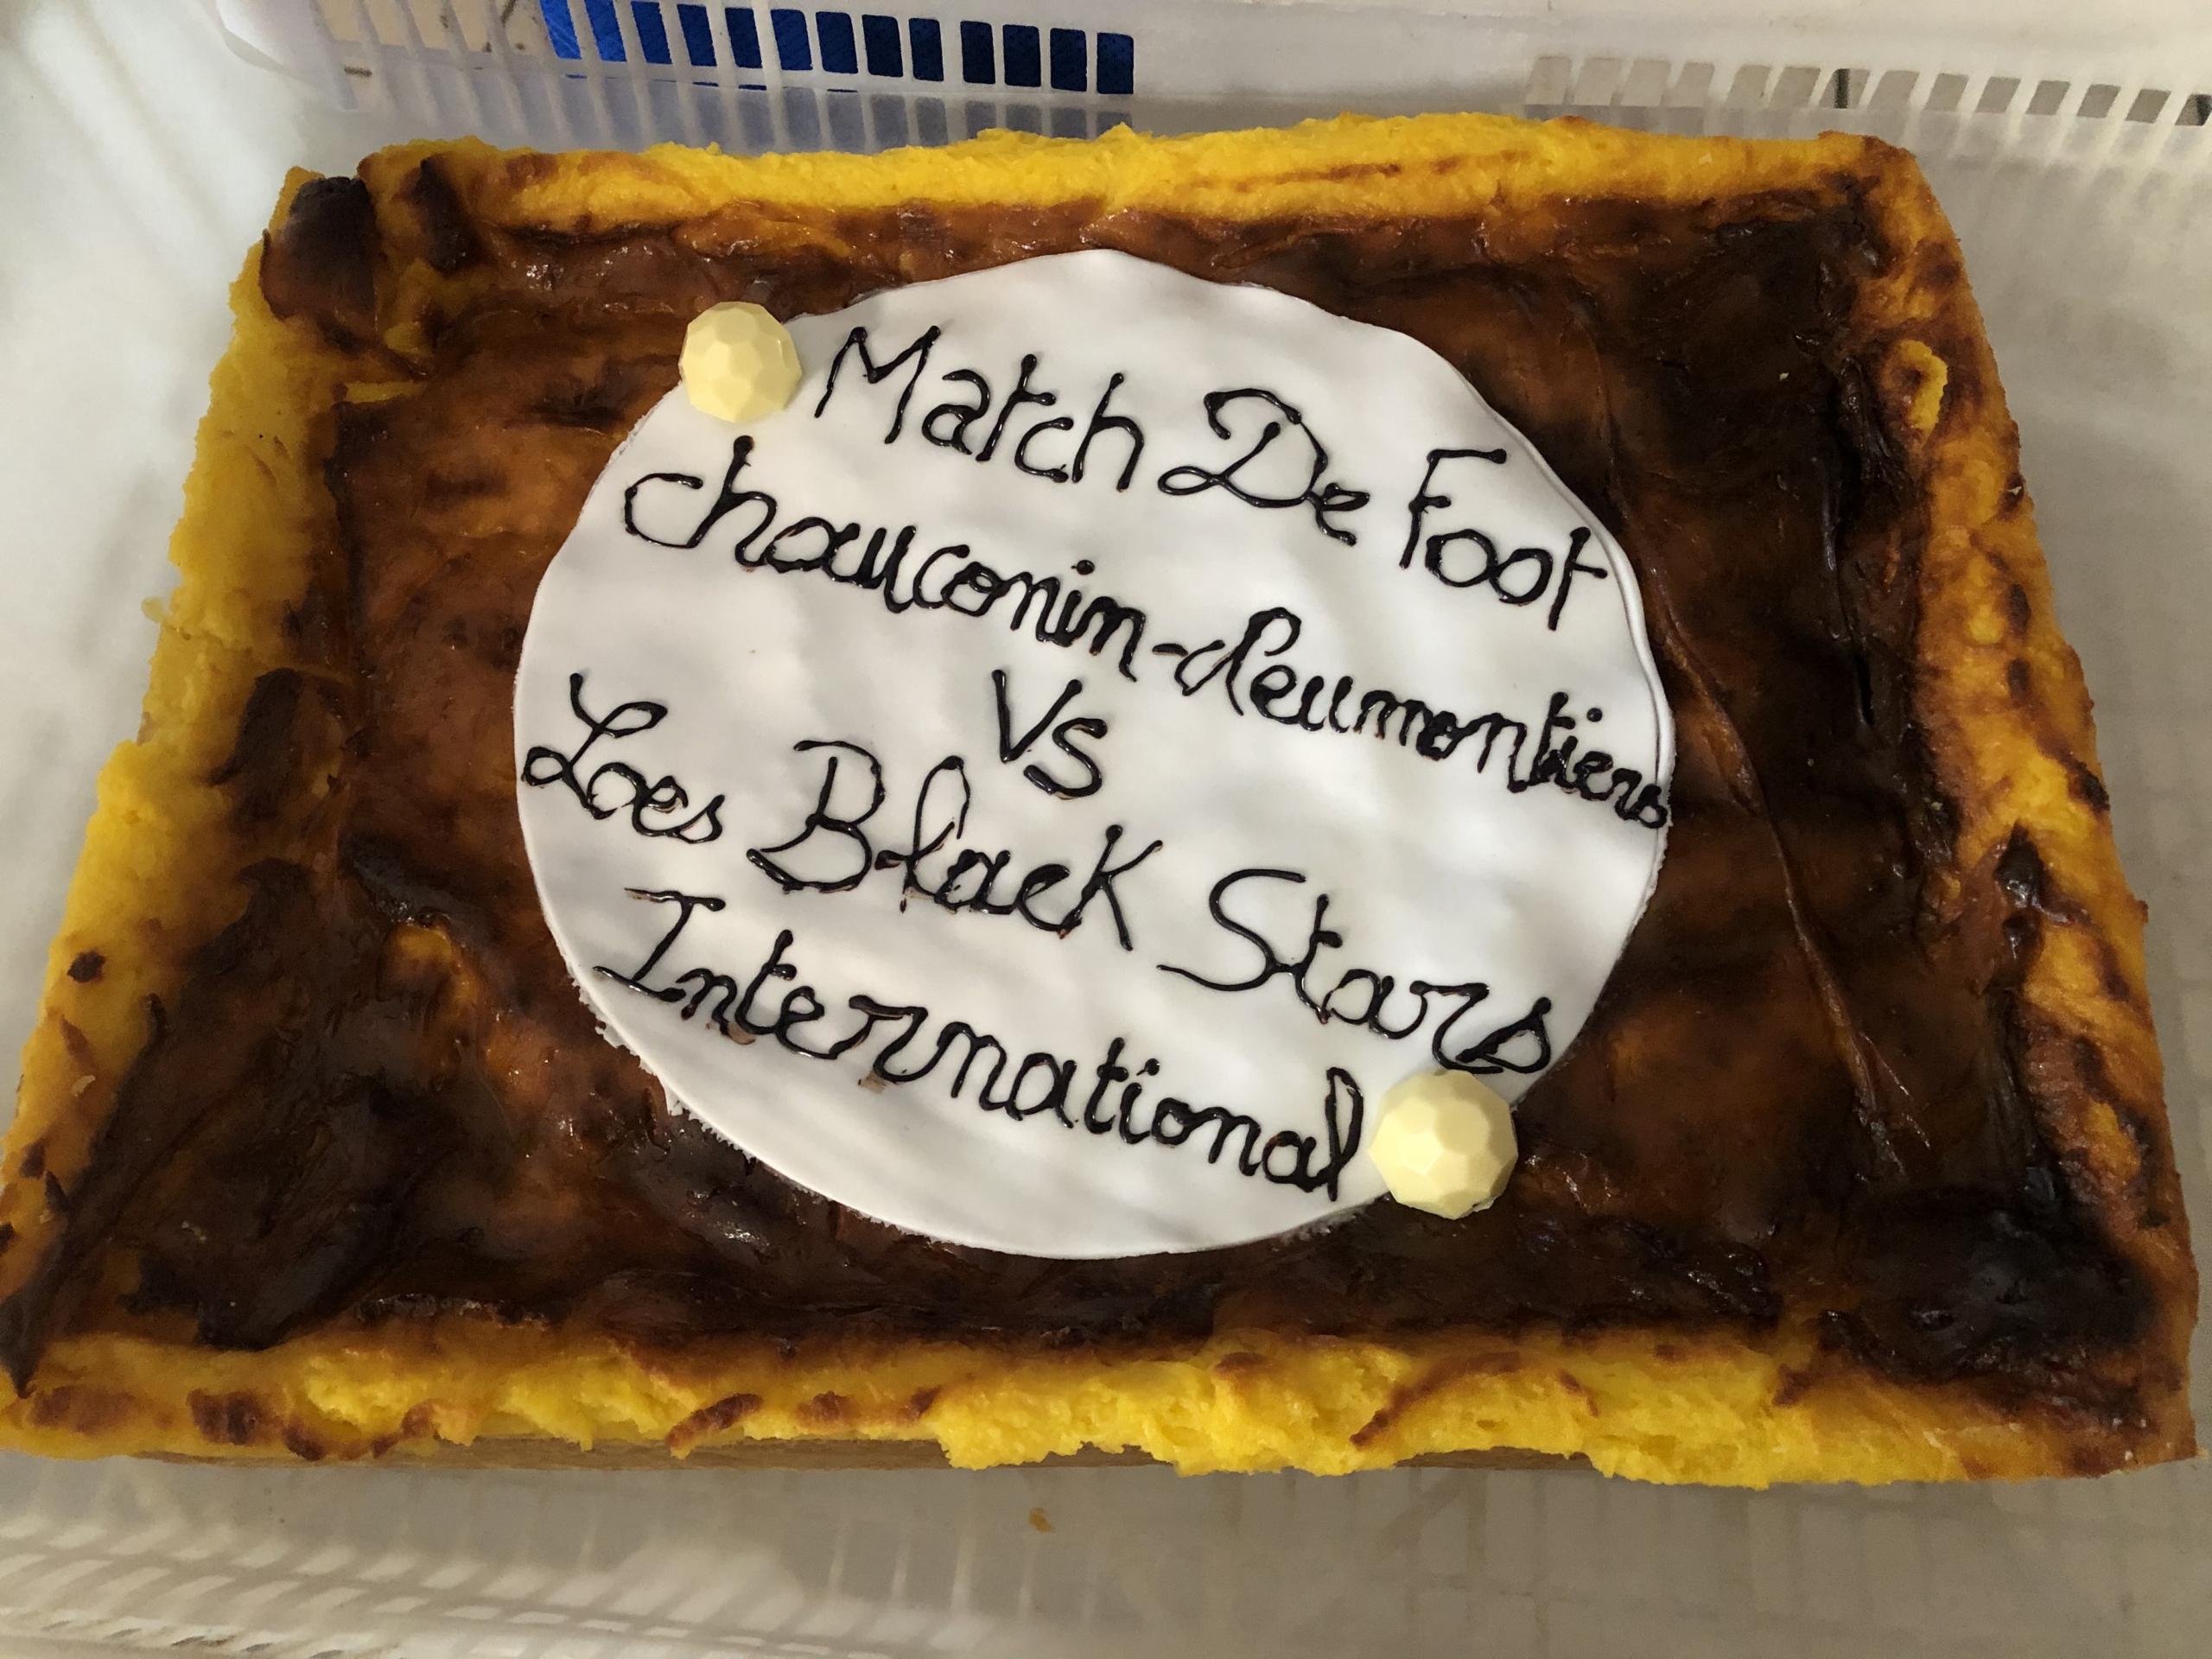 Match De Foot
chauconin-Neumontiers
Vs
Loes Black Stars
International